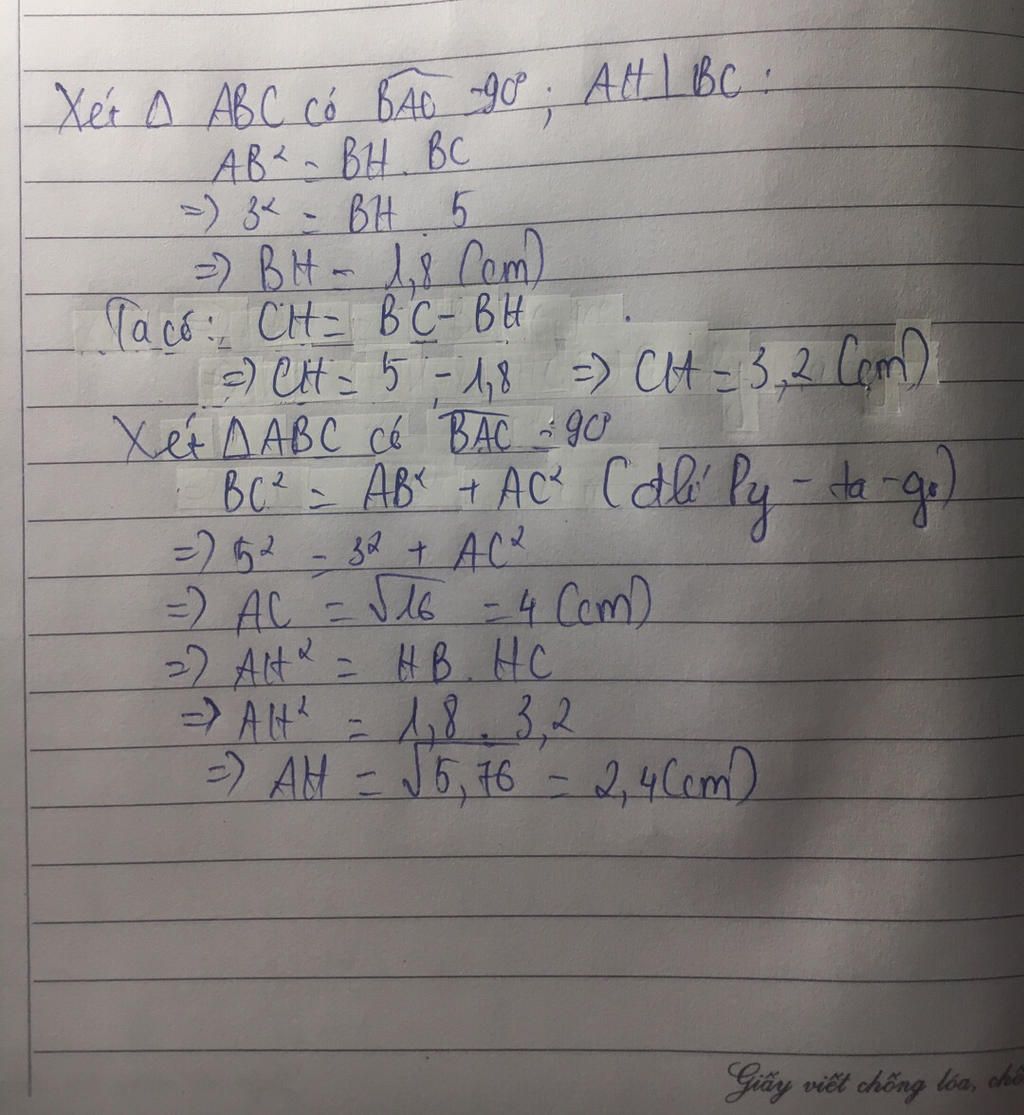 Xét Δ ABC có BAC = 90°; AH ⊥ BC:
AB² = BH . BC
=> 3² = BH . 5
=> BH = 1,8 (cm)
Ta có: CH = BC - BH
=> CH = 5 - 1,8 => CH = 3,2 (cm)
Xét Δ ABC có BAC = 90°
BC² = AB² + AC² (đlí Py - ta - go)
=> 5² = 3² + AC²
=> AC = √16 = 4 (cm)
=> AH² = HB . HC
=> AH² = 1,8 . 3,2
=> AH = √5,76 = 2,4 (cm)
Giấy viết chống lóa, chố